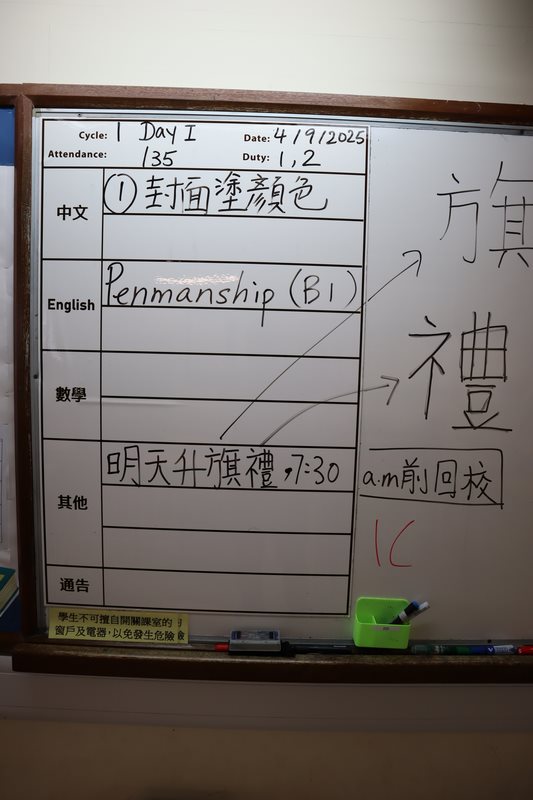 Cycle: 1 Day I Date: 4/9/2025
Attendance: /35 Duty: 1, 2
中文 ① 封面塗顏色
English Penmanship (B1)
數學
其他 明天升旗禮，7:30 a.m前回校
通告
旗
禮
1C
學生不可擅自開關課室的
窗戶及電器，以免發生危險